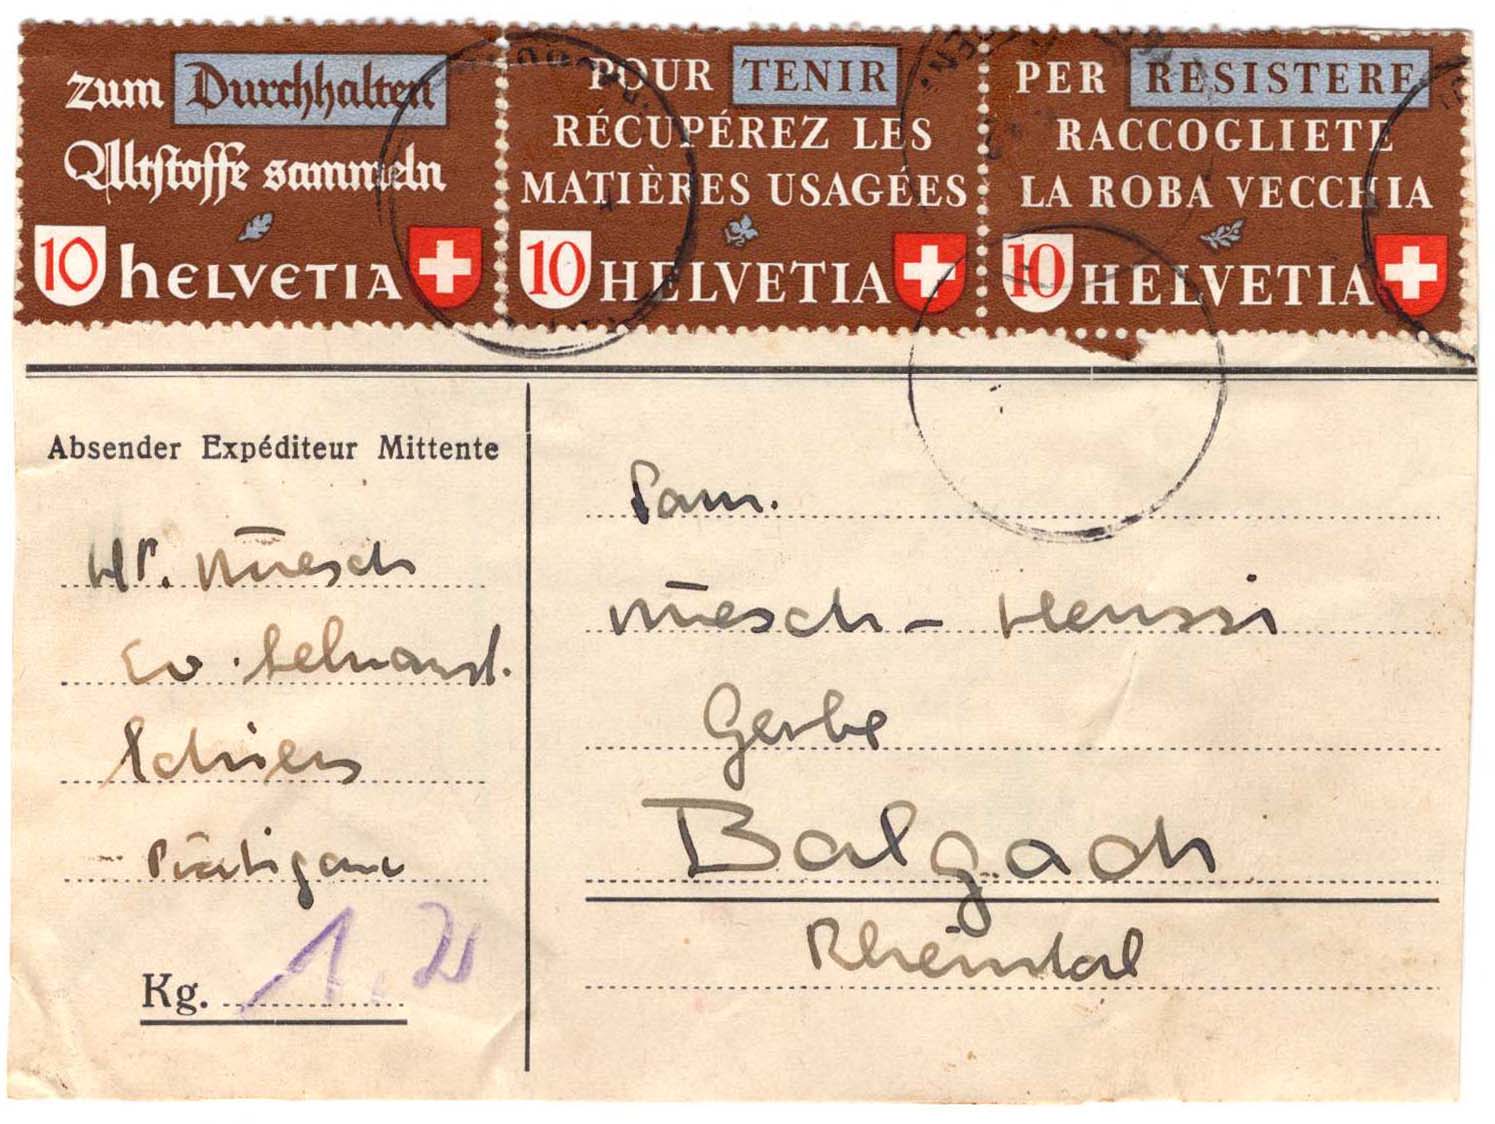 zum Durchhalten
Altstoffe sammeln
10 HELVETIA
POUR TENIR
RÉCUPÉREZ LES
MATIÈRES USAGÉES
10 HELVETIA
PER RESISTERE
RACCOGLIETE
LA ROBA VECCHIA
10 HELVETIA
Absender Expéditeur Mittente
Nüesch
Schiers
Prätigau
Kg. 1.2
Fam.
Nüesch - Heussi
Gerbe
Balgach
Rheintal